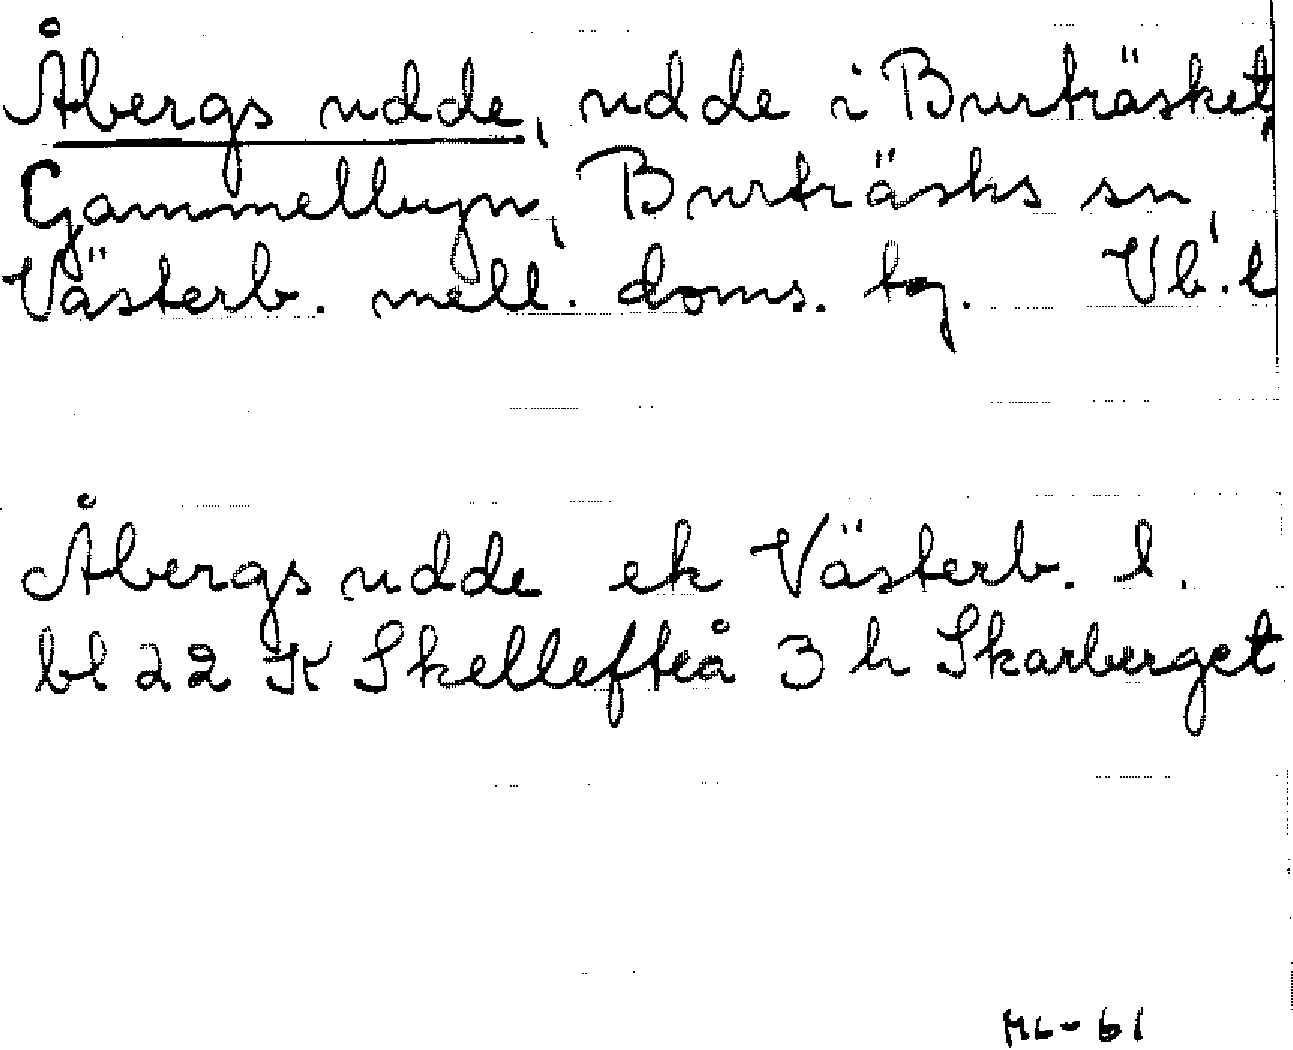 Åbergs udde, udde i Burträsket,
Gammelbyn, Burträsks sn,
Västerb. mell. doms. tg. Vb. l
Åbergs udde ek Västerb. l.
bl 22 K Skellefteå 3 h Skarberget
ML-61